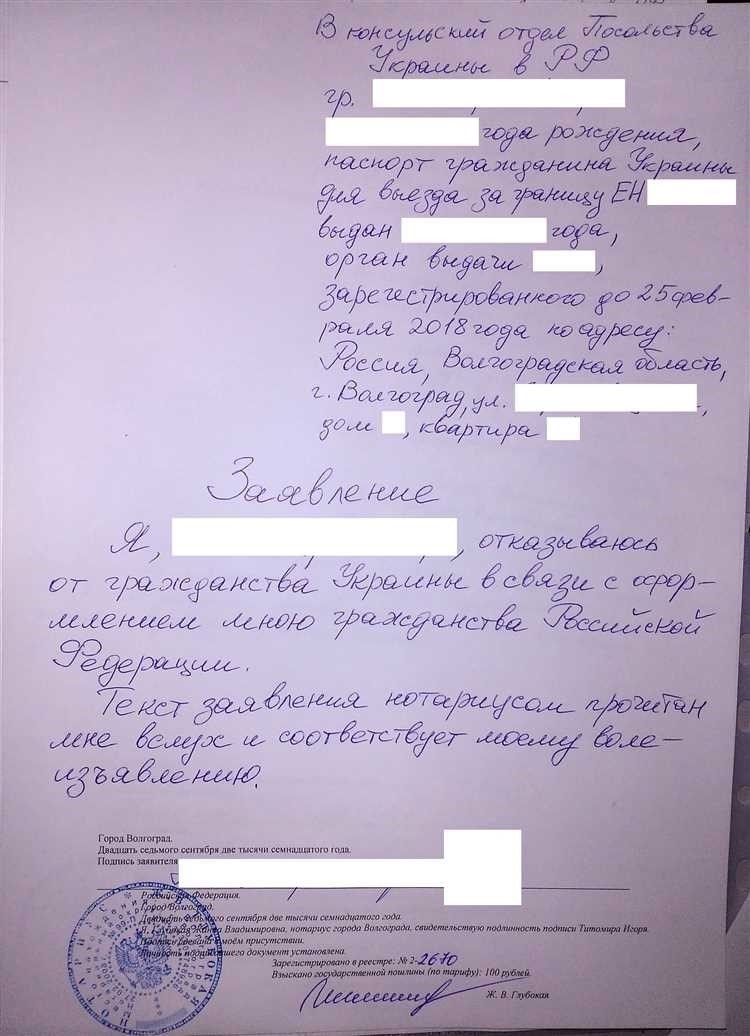 В консульский отдел Посольства
Украины в РФ
гр.
года рождения,
паспорт гражданина Украины
для выезда за границу ЕН
выдан года,
орган выдачи ,
зарегистрированного до 25 фев-
раля 2018 года по адресу:
Россия, Волгоградская область,
г. Волгоград, ул. ,
дом , квартира
Заявление
Я, , отказываюсь
от гражданства Украины в связи с офор-
млением мною гражданства Российской
Федерации.
Текст заявления нотариусом прочитан
мне вслух и соответствует моему воле-
изъявлению.
Город Волгоград.
Двадцать седьмого сентября две тысячи семнадцатого года.
Подпись заявителя
Российская Федерация.
Город Волгоград.
Двадцать седьмого сентября две тысячи семнадцатого года.
Я, Глубокая Жанна Владимировна, нотариус города Волгограда, свидетельствую подлинность подписи Титомира Игоря.
Подпись сделана в моём присутствии.
Личность подписавшего документ установлена.
Зарегистрировано в реестре: № 2-2670
Взыскано государственной пошлины (по тарифу): 100 рублей.
Ж. В. Глубокая